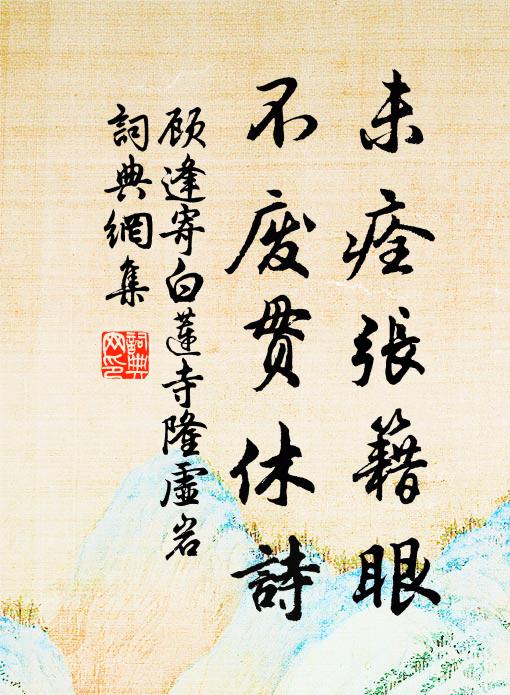 未痊張籍眼
不废貫休詩
顾逢寄白蓮寺隆虛岩
詞典網集
詞典網印